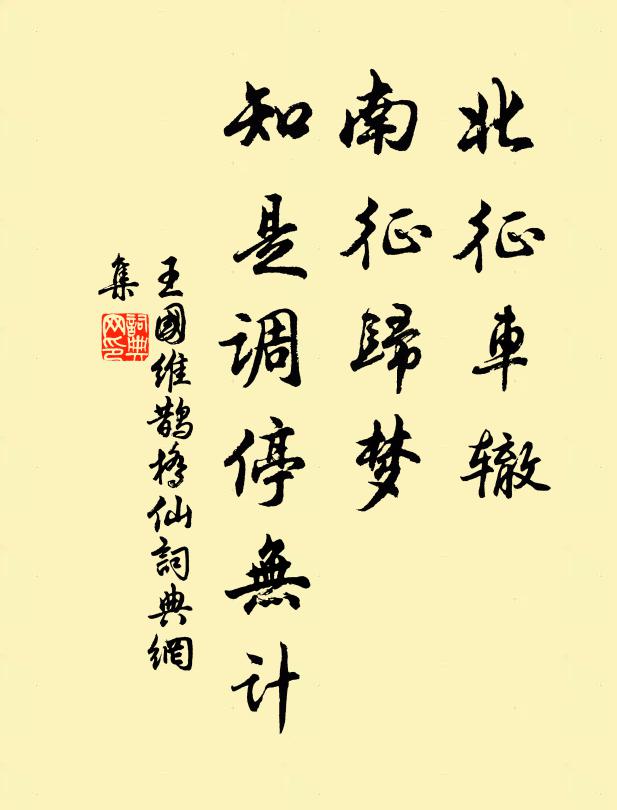 北征車辙
南征歸梦
知是调停無计
王國维鹊橋仙詞典網
集
詞典网印